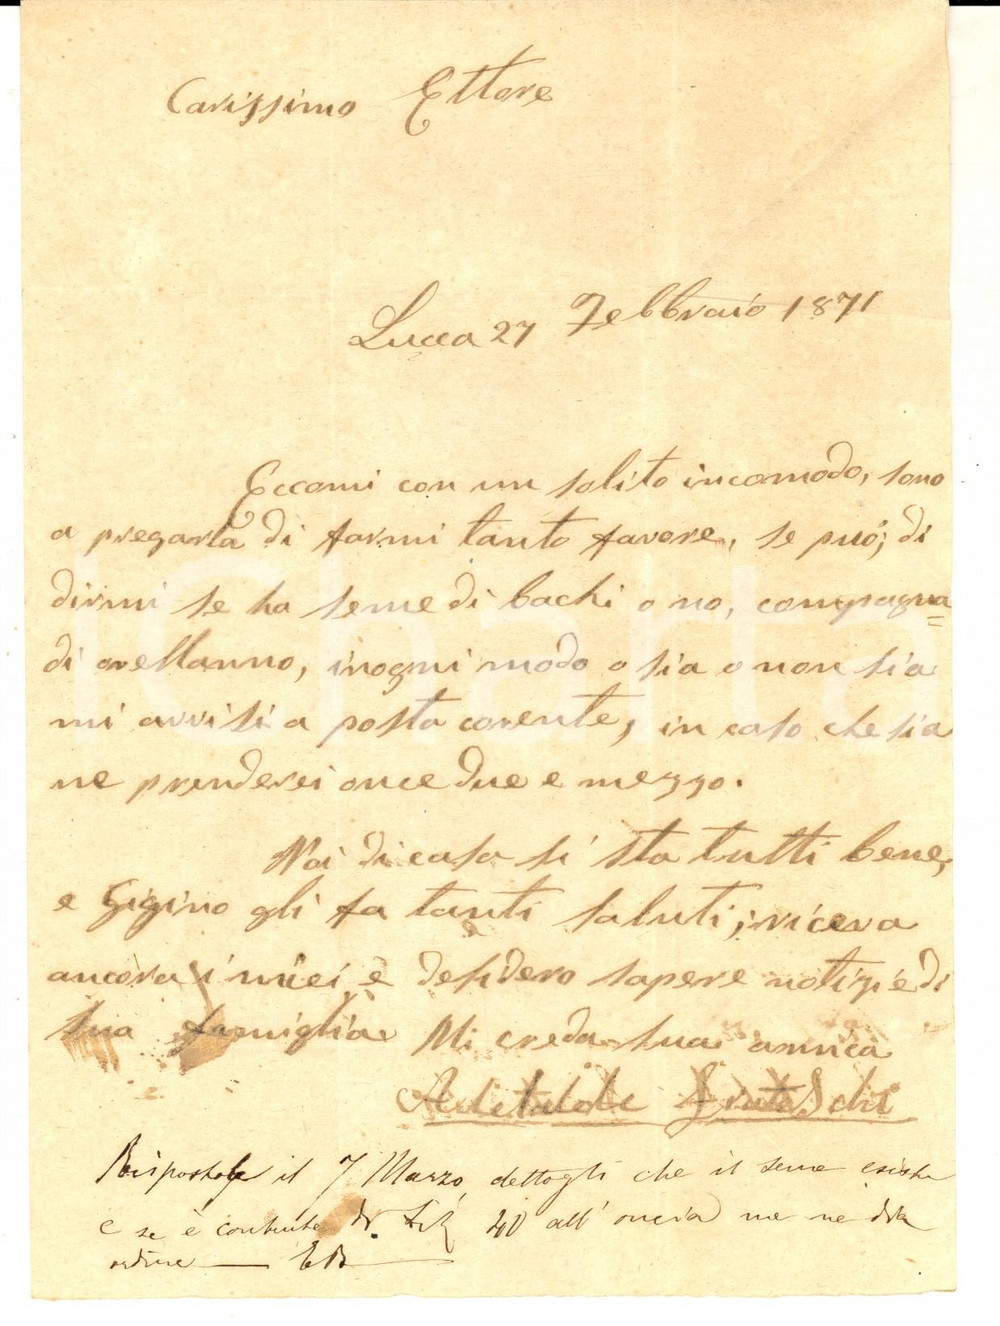 Carissimo Ettore
Lucca 27 Febbraio 1871
Eccomi con un solito incomodo, sono
a pregarla di farmi tanto favore, se può, di
dirmi se ha seme di bachi o no, compagna
di orellanno, inogni modo o sia o non sia
mi avvisi a posta corente, in caso che sia
ne prenderei once due e mezzo.
Noi di casa si sta tutti bene,
e Gigino gli fa tanti saluti, riceva
ancora i miei e desidero sapere notizie di
sua famiglia Mi creda sua amica
Risposto il 7 Marzo, dettogli che il seme esiste
e se è contenta di 40 all' oncia me ne dia
ordine — EB
iCharta